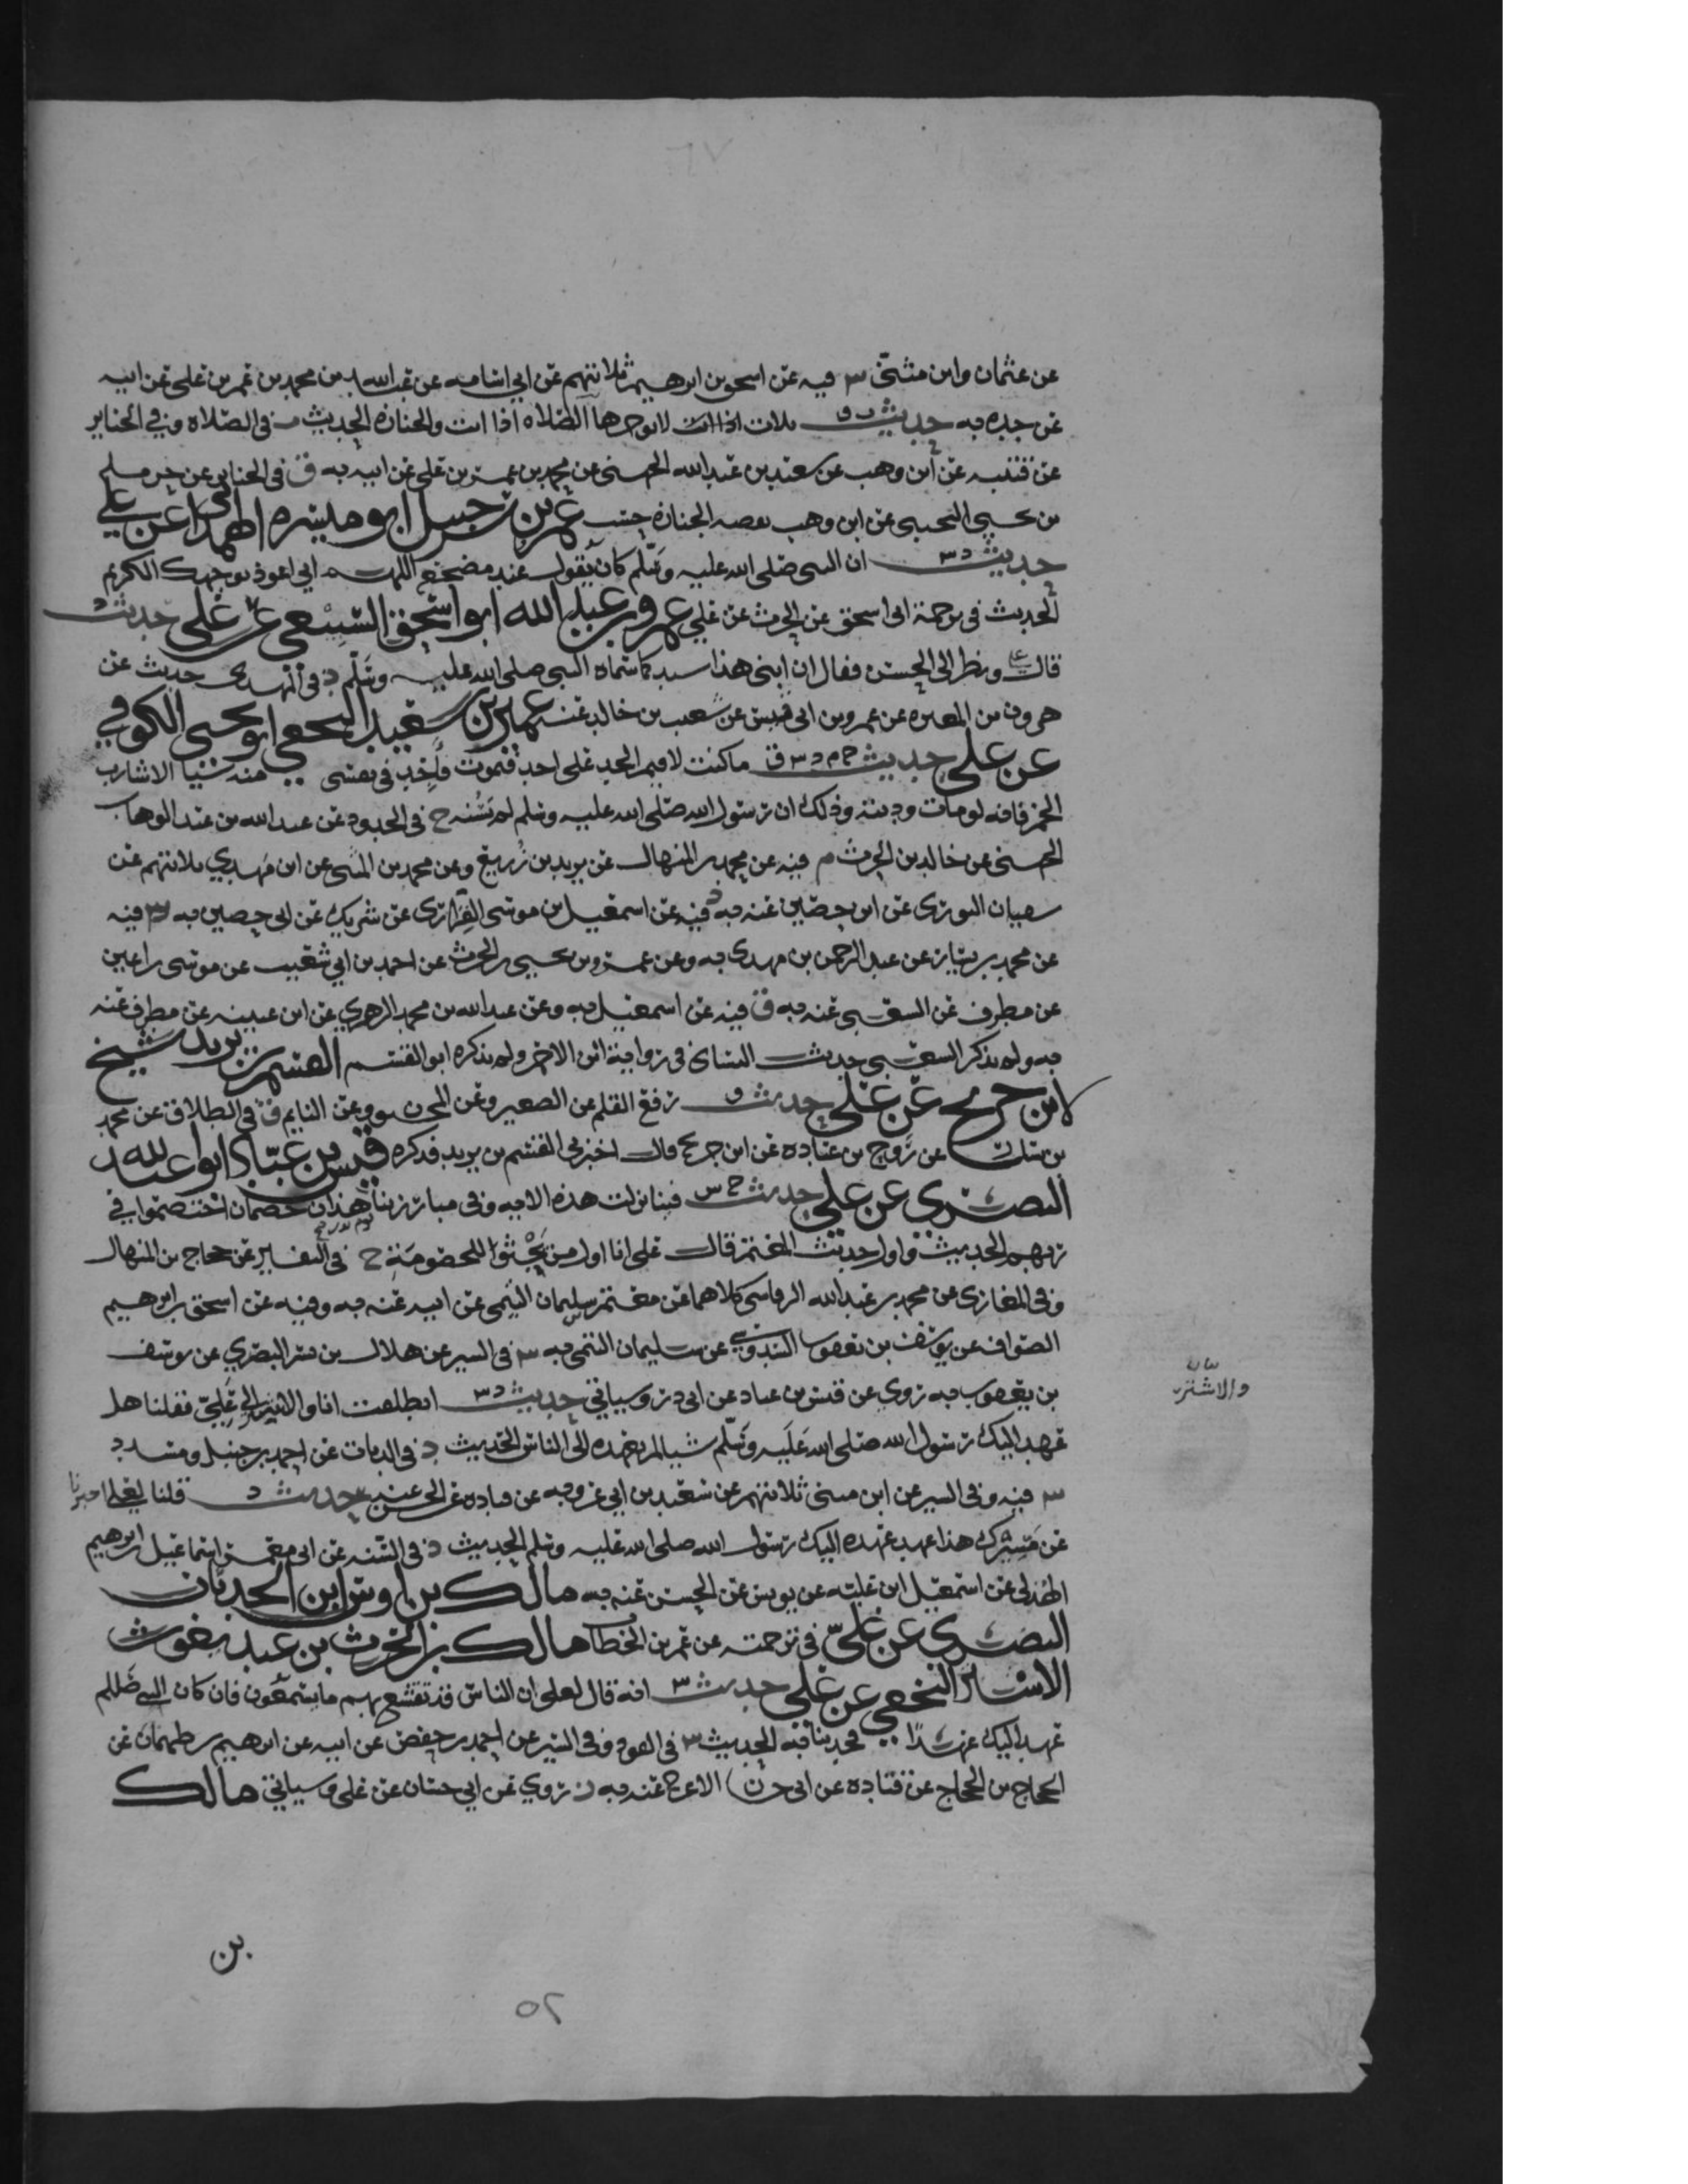 عن عثمان وابن مثنى س فيه عن اسحق بن ابرهيم ثلاثتهم عن ابي اسامه عن عبدالله بن محمد بن عمر بن علي عن ابيه
عن جده به حديث ت ق ثلاث لا توخرها الصلاه اذا اتت والجنازه الحديث ت في الصلاة وفي الجنايز
عن قتيبه عن ابن وهب عن سعيد بن عبدالله الجهني عن محمد بن عمر بن علي عن ابيه به ق في الجنايز عن حرمله
بن يحيى التجيبي عن ابن وهب بقصه الجنازه حسب عمرو بن شرحبيل ابو ميسره الهمداني عن علي
حديث د س ان النبي صلى الله عليه وسلم كان يقول عند مضجعه اللهم اني اعوذ بوجهك الكريم
الحديث في ترجمة ابي اسحق عن الحرث عن علي عمرو بن عبد الله ابو اسحق السبيعي عن علي حديث د
قال علي ونظر الى الحسن فقال ان ابني هذا سيد كما سماه النبي صلى الله عليه وسلم د في المهدي حديث عن
هرون بن المغيره عن عمرو بن ابي قيس عن شعيب بن خالد عنه عمير بن سعيد النخعي ابو يحيى الكوفي
عن علي حديث خ م د س ق ما كنت لاقيم الحد على احد فيموت فاجد في نفسي منه شيا الا شارب
الخمر فانه لو مات وديته وذلك ان رسول الله صلى الله عليه وسلم لم يسنه خ في الحدود عن عبد الله بن عبد الوهاب
الحجبي عن خالد بن الحرث م فيه عن محمد بن المنهال عن يزيد بن زريع وعن محمد بن المثنى عن ابن مهدي ثلاثتهم عن
سفيان الثوري عن ابي حصين عنه به د فيه عن اسمعيل بن موسى الفزاري عن شريك عن ابي حصين به س فيه
عن محمد بن بشار عن عبد الرحمن بن مهدي به وعن عمرو بن يحيى بن الحرث عن احمد بن ابي شعيب عن موسى بن اعين
عن مطرف عن الشعبي عنه به ق فيه عن اسمعيل به وعن عبد الله بن محمد الزهري عن ابن عيينه عن مطرف عنه
به ولم يذكر الشعبي حديث النساي في رواية ابن الاحمر ولم يذكره ابو القسم القسم بن يزيد شيخ
لابن جريج عن علي حديث ق رفع القلم عن الصغير وعن المجنون وعن النايم ق في الطلاق عن محمد
بن بشار عن روح بن عباده عن ابن جريج قال اخبرني القسم بن يزيد فذكره قيس بن عباد ابو عبد الله
البصري عن علي حديث خ س فينا نزلت هذه الايه وفي مبارزتنا يوم بدر هذان خصمان اختصموا في
ربهم الحديث واول حديث المعتمر قال علي انا اول من يجثوا للخصومة خ في التفسير عن حجاج بن المنهال
وفي المغازي عن محمد بن عبد الله الرقاشي كلاهما عن معتمر بن سليمان التيمي عن ابيه عنه به وفيه عن اسحق بن ابرهيم
الصواف عن يوسف بن يعقوب السدوسي عن سليمان التيمي به س في السير عن هلال بن بشر البصري عن يوسف
بن يعقوب به روي عن قيس بن عباد عن ابي ذر وسياتي حديث د س انطلقت انا والاشتر الى علي فقلنا هل
والاشتر
عهد اليك رسول الله صلى الله عليه وسلم شيا لم يعهده الى الناس الحديث د في الديات عن احمد بن حنبل ومسدد
س فيه وفي السير عن ابن مثنى ثلاثتهم عن سعيد بن ابي عروبه عن قتاده عن الحسن عنه به حديث د قلنا لعلي اخبرنا
عن مسيرك هذا عهد عهده اليك رسول الله صلى الله عليه وسلم الحديث د في السنه عن ابي معمر اسماعيل بن ابرهيم
الهذلي عن اسمعيل ابن عليه عن يونس عن الحسن عنه به مالك بن اوس ابن الحدثان
النصري عن علي في ترجمته عن عمر بن الخطاب مالك بن الحرث بن عبد يغوث
الاشتر النخعي عن علي حديث س انه قال لعلي ان الناس قد تفشغ بهم ما يسمعون فان كان النبي صلى
عهد اليك عهدا فحدثنا به الحديث س في القود وفي السير عن احمد بن حفص عن ابيه عن ابرهيم بن طهمان عن
الحجاج بن الحجاج عن قتاده عن ابي حسان الاعرج عنه به روي عن ابي حسان عن علي وسياتي مالك
بن
٥٢